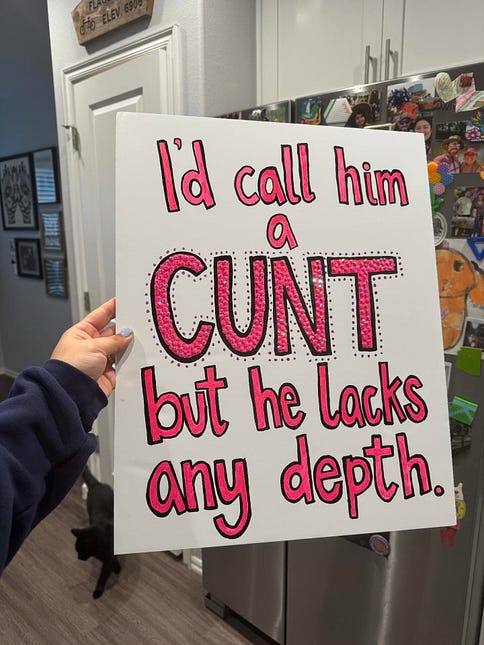 FLAG
ELEV. 6906
I'd call him
a
CUNT
but he lacks
any depth.